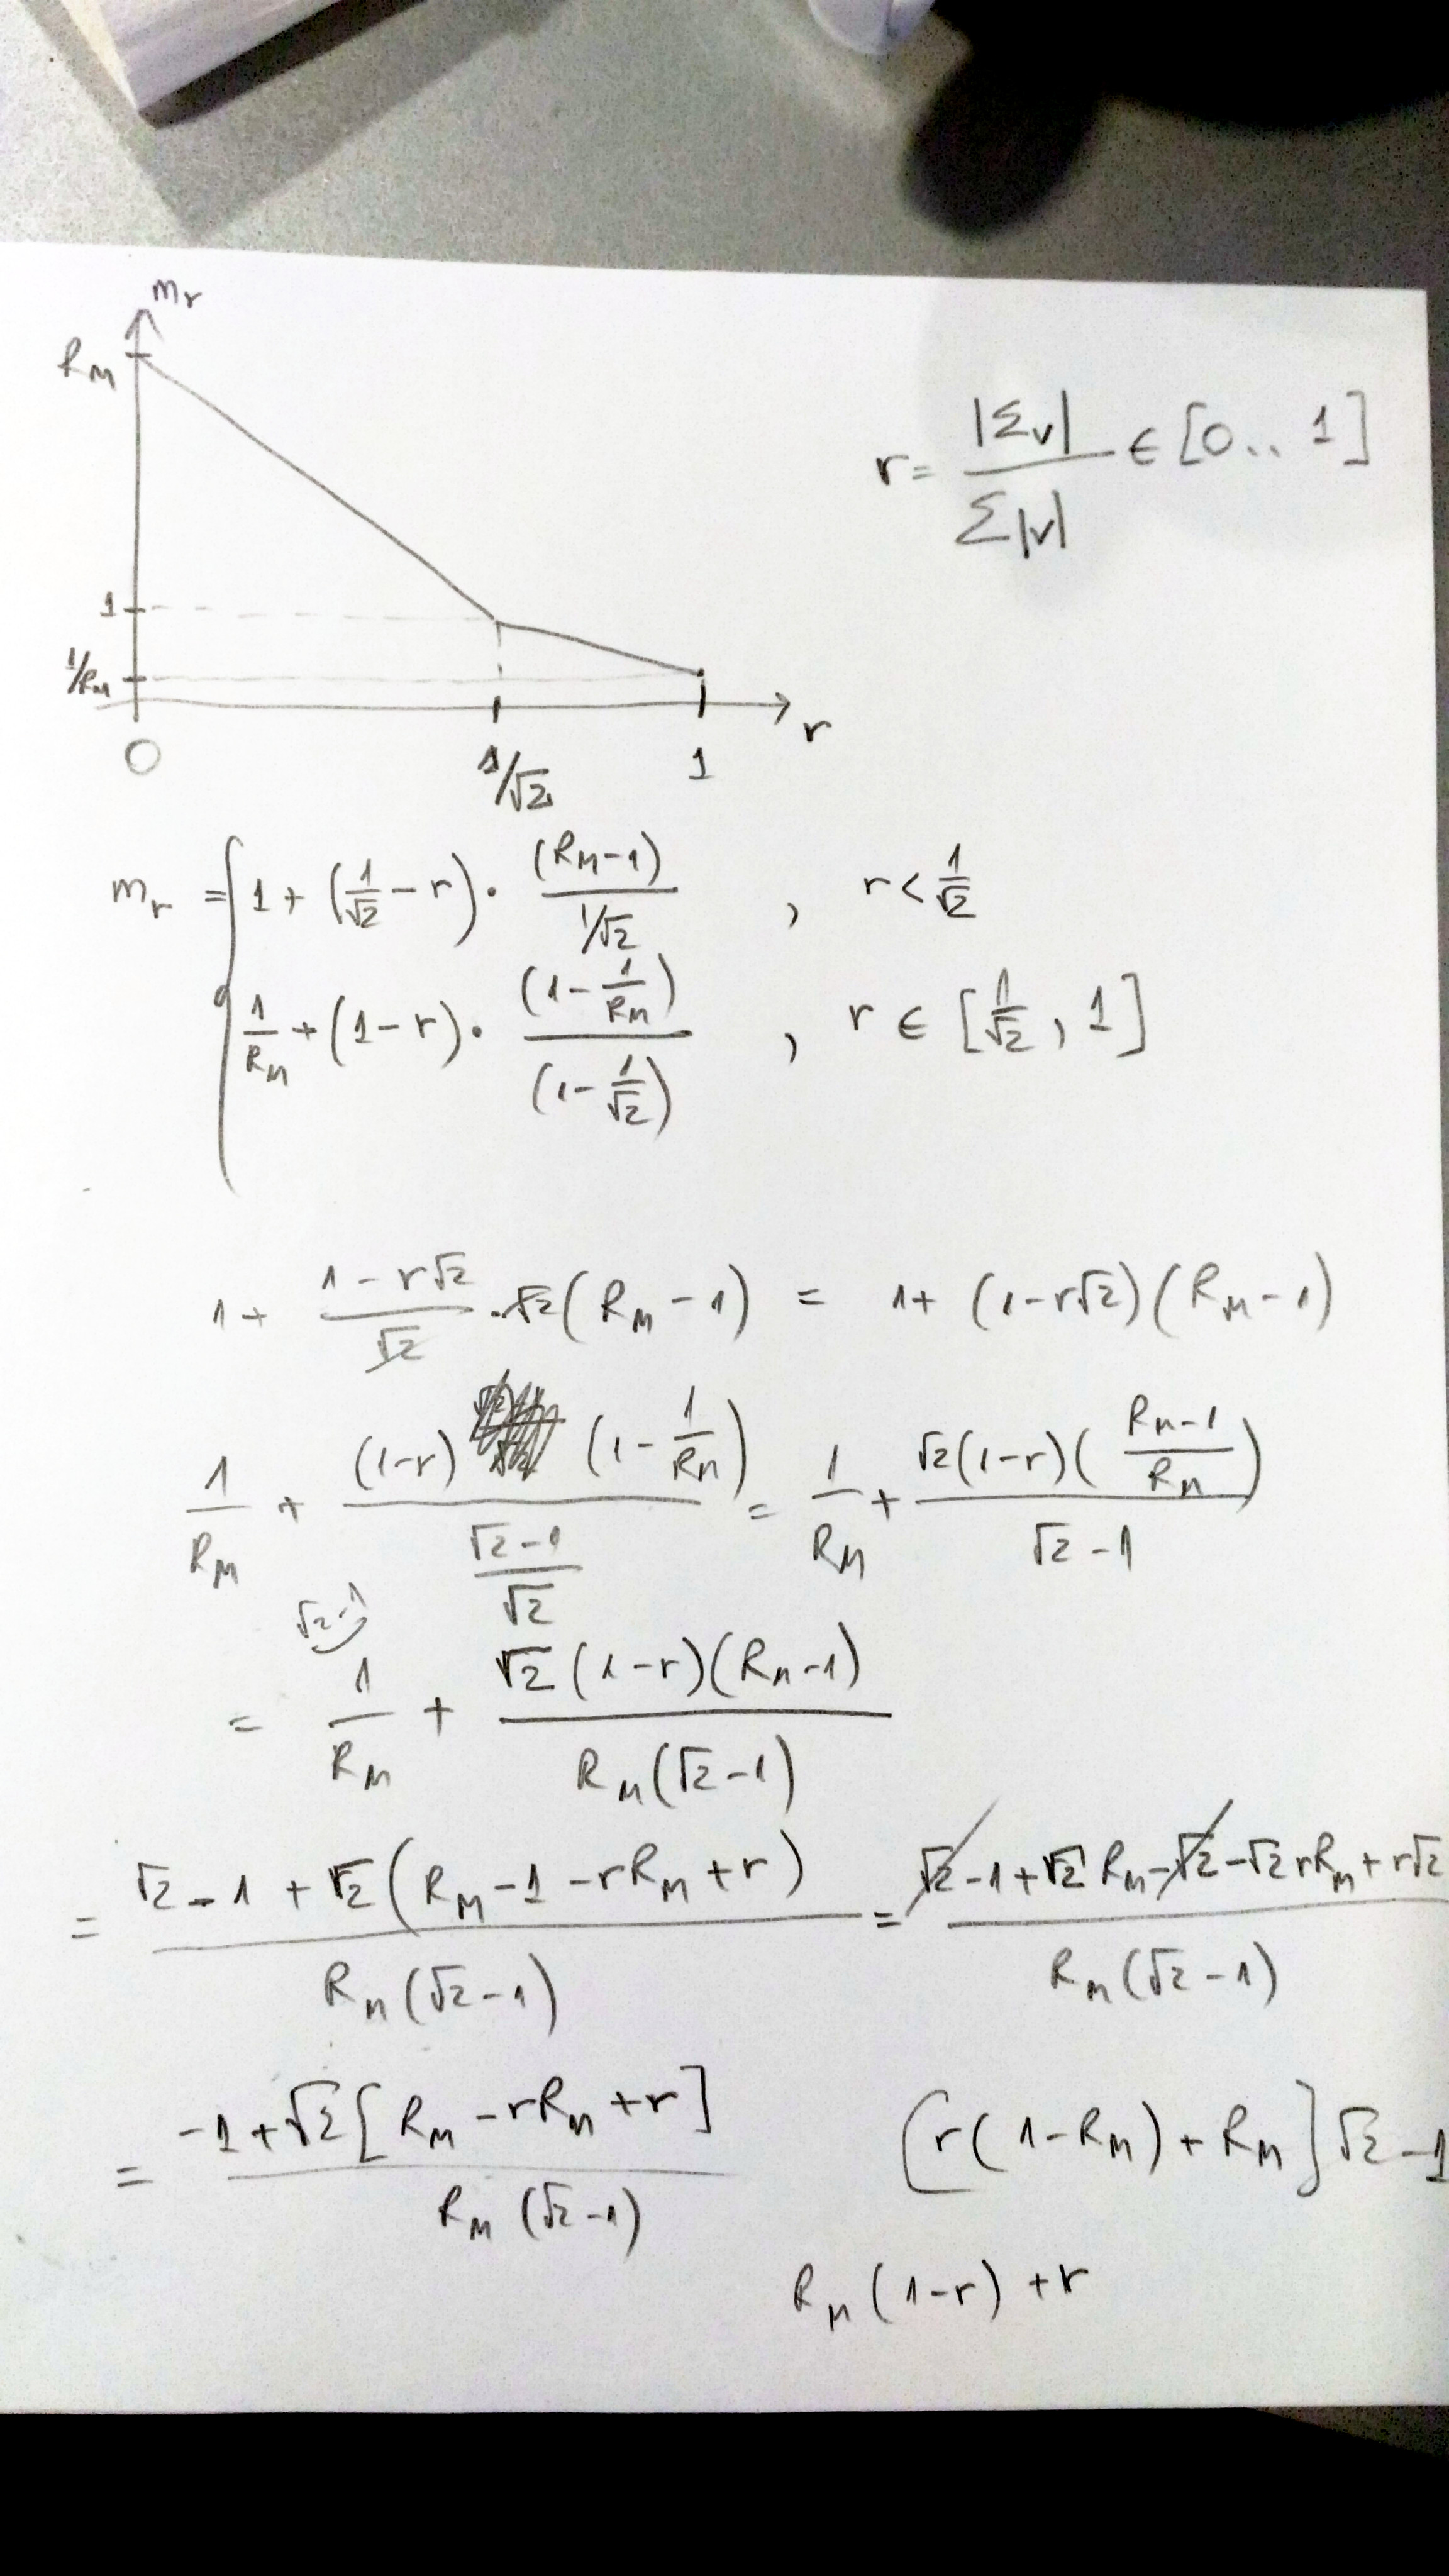 m_r
R_M
1
1/R_M
0
1/√2
1
r
r = |Σv| / Σ|v| ∈ [0.. 1]
m_r = { 1 + (1/√2 − r) · (R_M−1) / (1/√2) , r < 1/√2
1/R_M + (1−r) · (1 − 1/R_M) / (1 − 1/√2) , r ∈ [1/√2, 1]
1 + (1 − r√2)/√2 · √2 (R_M − 1) = 1 + (1−r√2)(R_M − 1)
1/R_M + (1−r) (1 − 1/R_M) / ((√2−1)/√2) = 1/R_M + √2(1−r)((R_M−1)/R_M) / (√2 −1)
√2−1
= 1/R_M + √2(1−r)(R_M−1) / R_M(√2−1)
= (√2 − 1 + √2(R_M − 1 − rR_M + r)) / R_M(√2−1) = (√2 − 1 + √2 R_M − √2 − √2 rR_M + r√2) / R_M(√2−1)
= (−1 + √2[R_M − rR_M + r]) / R_M(√2−1) [r(1−R_M) + R_M]√2 − 1
R_M(1−r) + r